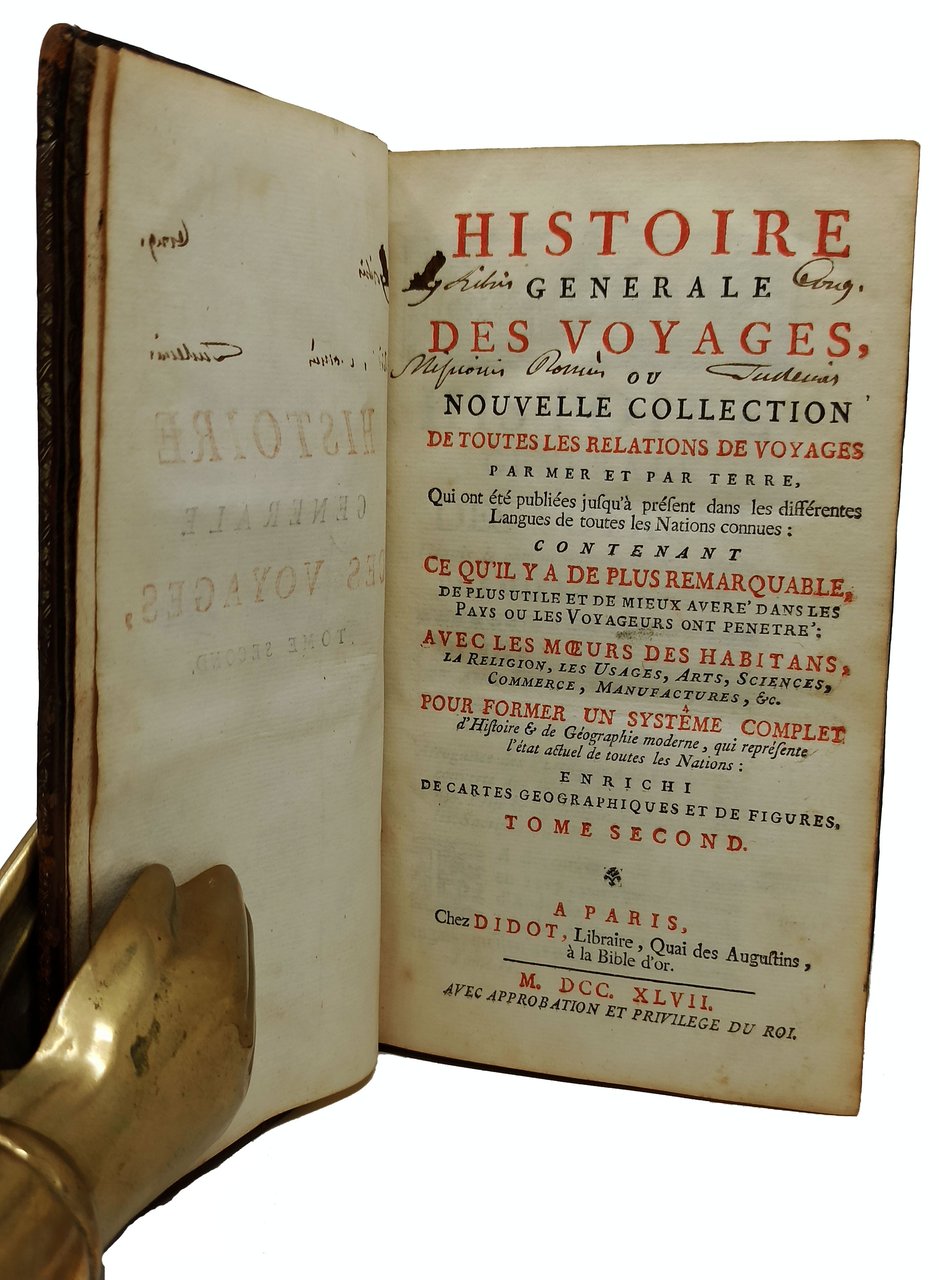 HISTOIRE
GENERALE
DES VOYAGES,
GENERALE
TOME SECOND.
HISTOIRE
GENERALE Cong.
DES VOYAGES,
Romæ
OU
NOUVELLE COLLECTION
DE TOUTES LES RELATIONS DE VOYAGES
PAR MER ET PAR TERRE,
Qui ont été publiées juſqu'à préſent dans les différentes
Langues de toutes les Nations connues :
CONTENANT
CE QU'IL Y A DE PLUS REMARQUABLE,
DE PLUS UTILE ET DE MIEUX AVERE' DANS LES
PAYS OU LES VOYAGEURS ONT PENETRE' :
AVEC LES MŒURS DES HABITANS,
LA RELIGION, LES USAGES, ARTS, SCIENCES,
COMMERCE, MANUFACTURES, &c.
POUR FORMER UN SYSTÊME COMPLET
d'Hiſtoire & de Géographie moderne, qui repréſente
l'état actuel de toutes les Nations :
ENRICHI
DE CARTES GEOGRAPHIQUES ET DE FIGURES,
TOME SECOND.
A PARIS,
Chez DIDOT, Libraire, Quai des Auguſtins,
à la Bible d'or.
M. DCC. XLVII.
AVEC APPROBATION ET PRIVILEGE DU ROI.